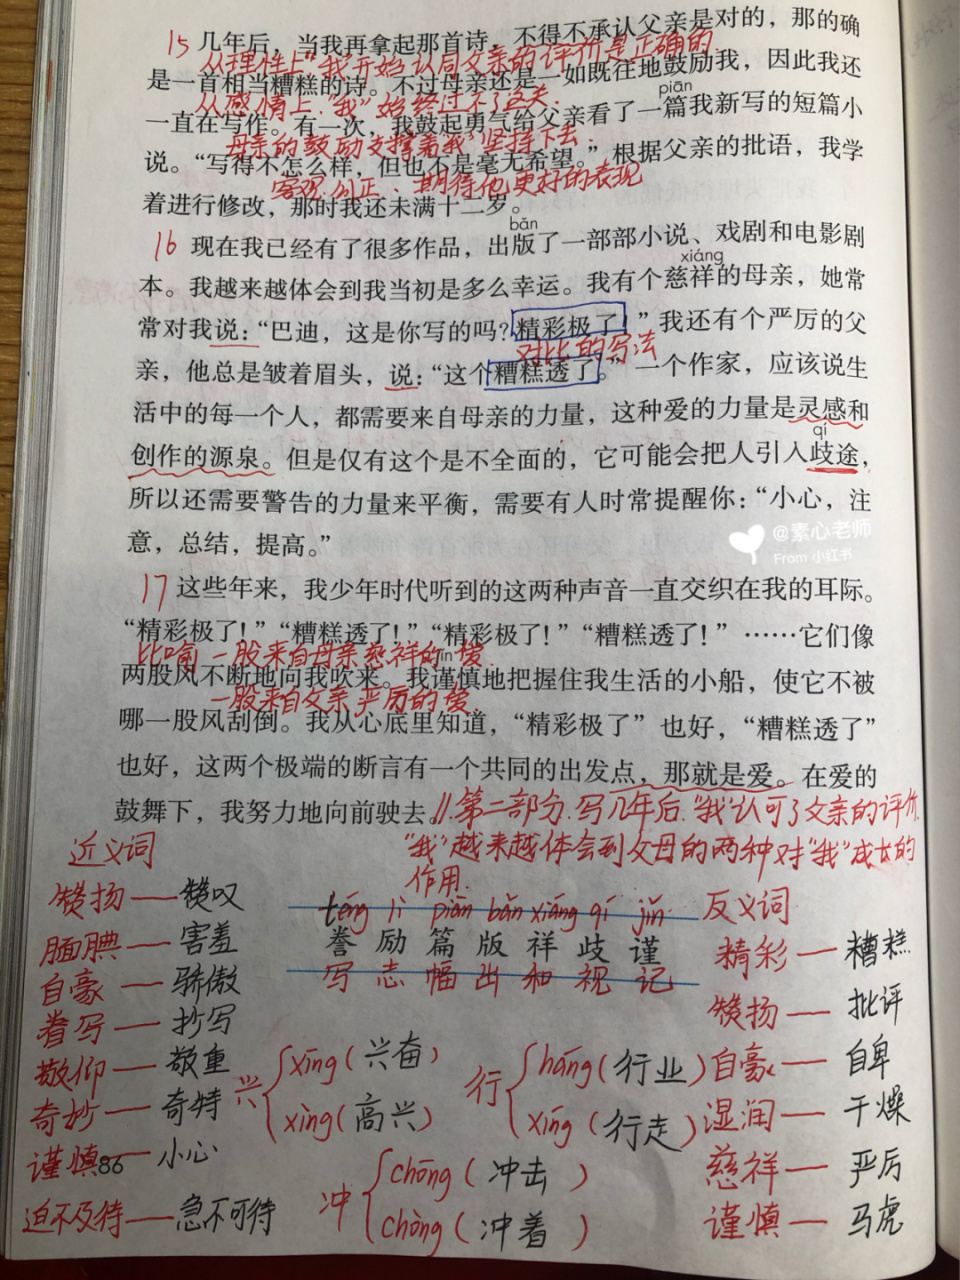 15 几年后，当我再拿起那首诗，不得不承认父亲是对的，那的确
从理性上"我开始认同父亲的评价是正确的.
是一首相当糟糕的诗。不过母亲还是一如既往地鼓励我，因此我还
从感情上."我"始终过不了这关.
piān
一直在写作。有一次，我鼓起勇气给父亲看了一篇我新写的短篇小
母亲的鼓励支撑着"我"坚持下去.
说。“写得不怎么样，但也不是毫无希望。”根据父亲的批语，我学
客观.公正、期待他更好的表现
着进行修改，那时我还未满十二岁。
bǎn
16 现在我已经有了很多作品，出版了一部部小说、戏剧和电影剧
xiáng
本。我越来越体会到我当初是多么幸运。我有个慈祥的母亲，她常
常对我说：“巴迪，这是你写的吗？精彩极了！”我还有个严厉的父
对比的写法
亲，他总是皱着眉头，说：“这个糟糕透了。”一个作家，应该说生
活中的每一个人，都需要来自母亲的力量，这种爱的力量是灵感和
qí
创作的源泉。但是仅有这个是不全面的，它可能会把人引入歧途，
所以还需要警告的力量来平衡，需要有人时常提醒你：“小心，注
意，总结，提高。”
@素心老师
From 小红书
17 这些年来，我少年时代听到的这两种声音一直交织在我的耳际。
“精彩极了！”“糟糕透了！”“精彩极了！”“糟糕透了！”……它们像
比喻 一股来自母亲慈祥的爱.
jǐn
两股风不断地向我吹来。我谨慎地把握住我生活的小船，使它不被
一股来自父亲严厉的爱
哪一股风刮倒。我从心底里知道，“精彩极了”也好，“糟糕透了”
也好，这两个极端的断言有一个共同的出发点，那就是爱。在爱的
鼓舞下，我努力地向前驶去。//第二部分.写几年后."我"认可了父亲的评价.
"我"越来越体会到父母的两种对"我"成长的
作用.
近义词
赞扬——赞叹
腼腆——害羞
自豪——骄傲
誊写——抄写
敬仰——敬重
奇妙——奇特
谨慎——小心
迫不及待——急不可待
téng lì piān bǎn xiáng qí jǐn
誊 励 篇 版 祥 歧 谨
写 志 幅 出 和 视 记
兴 xīng(兴奋)
xìng(高兴)
行 háng(行业)
xíng(行走)
冲 chōng(冲击)
chòng(冲着)
反义词
精彩——糟糕
赞扬——批评
自豪——自卑
湿润——干燥
慈祥——严厉
谨慎——马虎
86